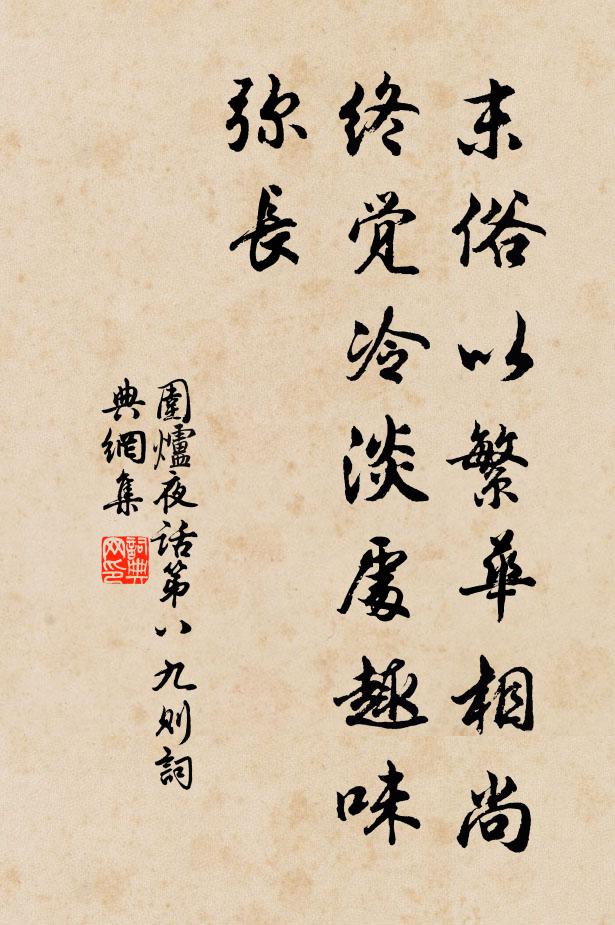 末俗以繁華相尚
终觉冷淡處趣味
弥長
圍爐夜话第八九则詞
典網集
詞典
网印